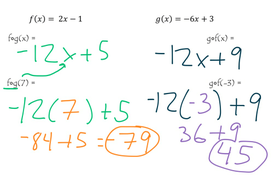 f(x) = 2x − 1
g(x) = −6x + 3
fog(x) =
-12x+5
gof(x) =
-12x+9
fog(7) =
-12(7)+5
-84+5=-79
gof(-3) =
-12(-3)+9
36+9
45